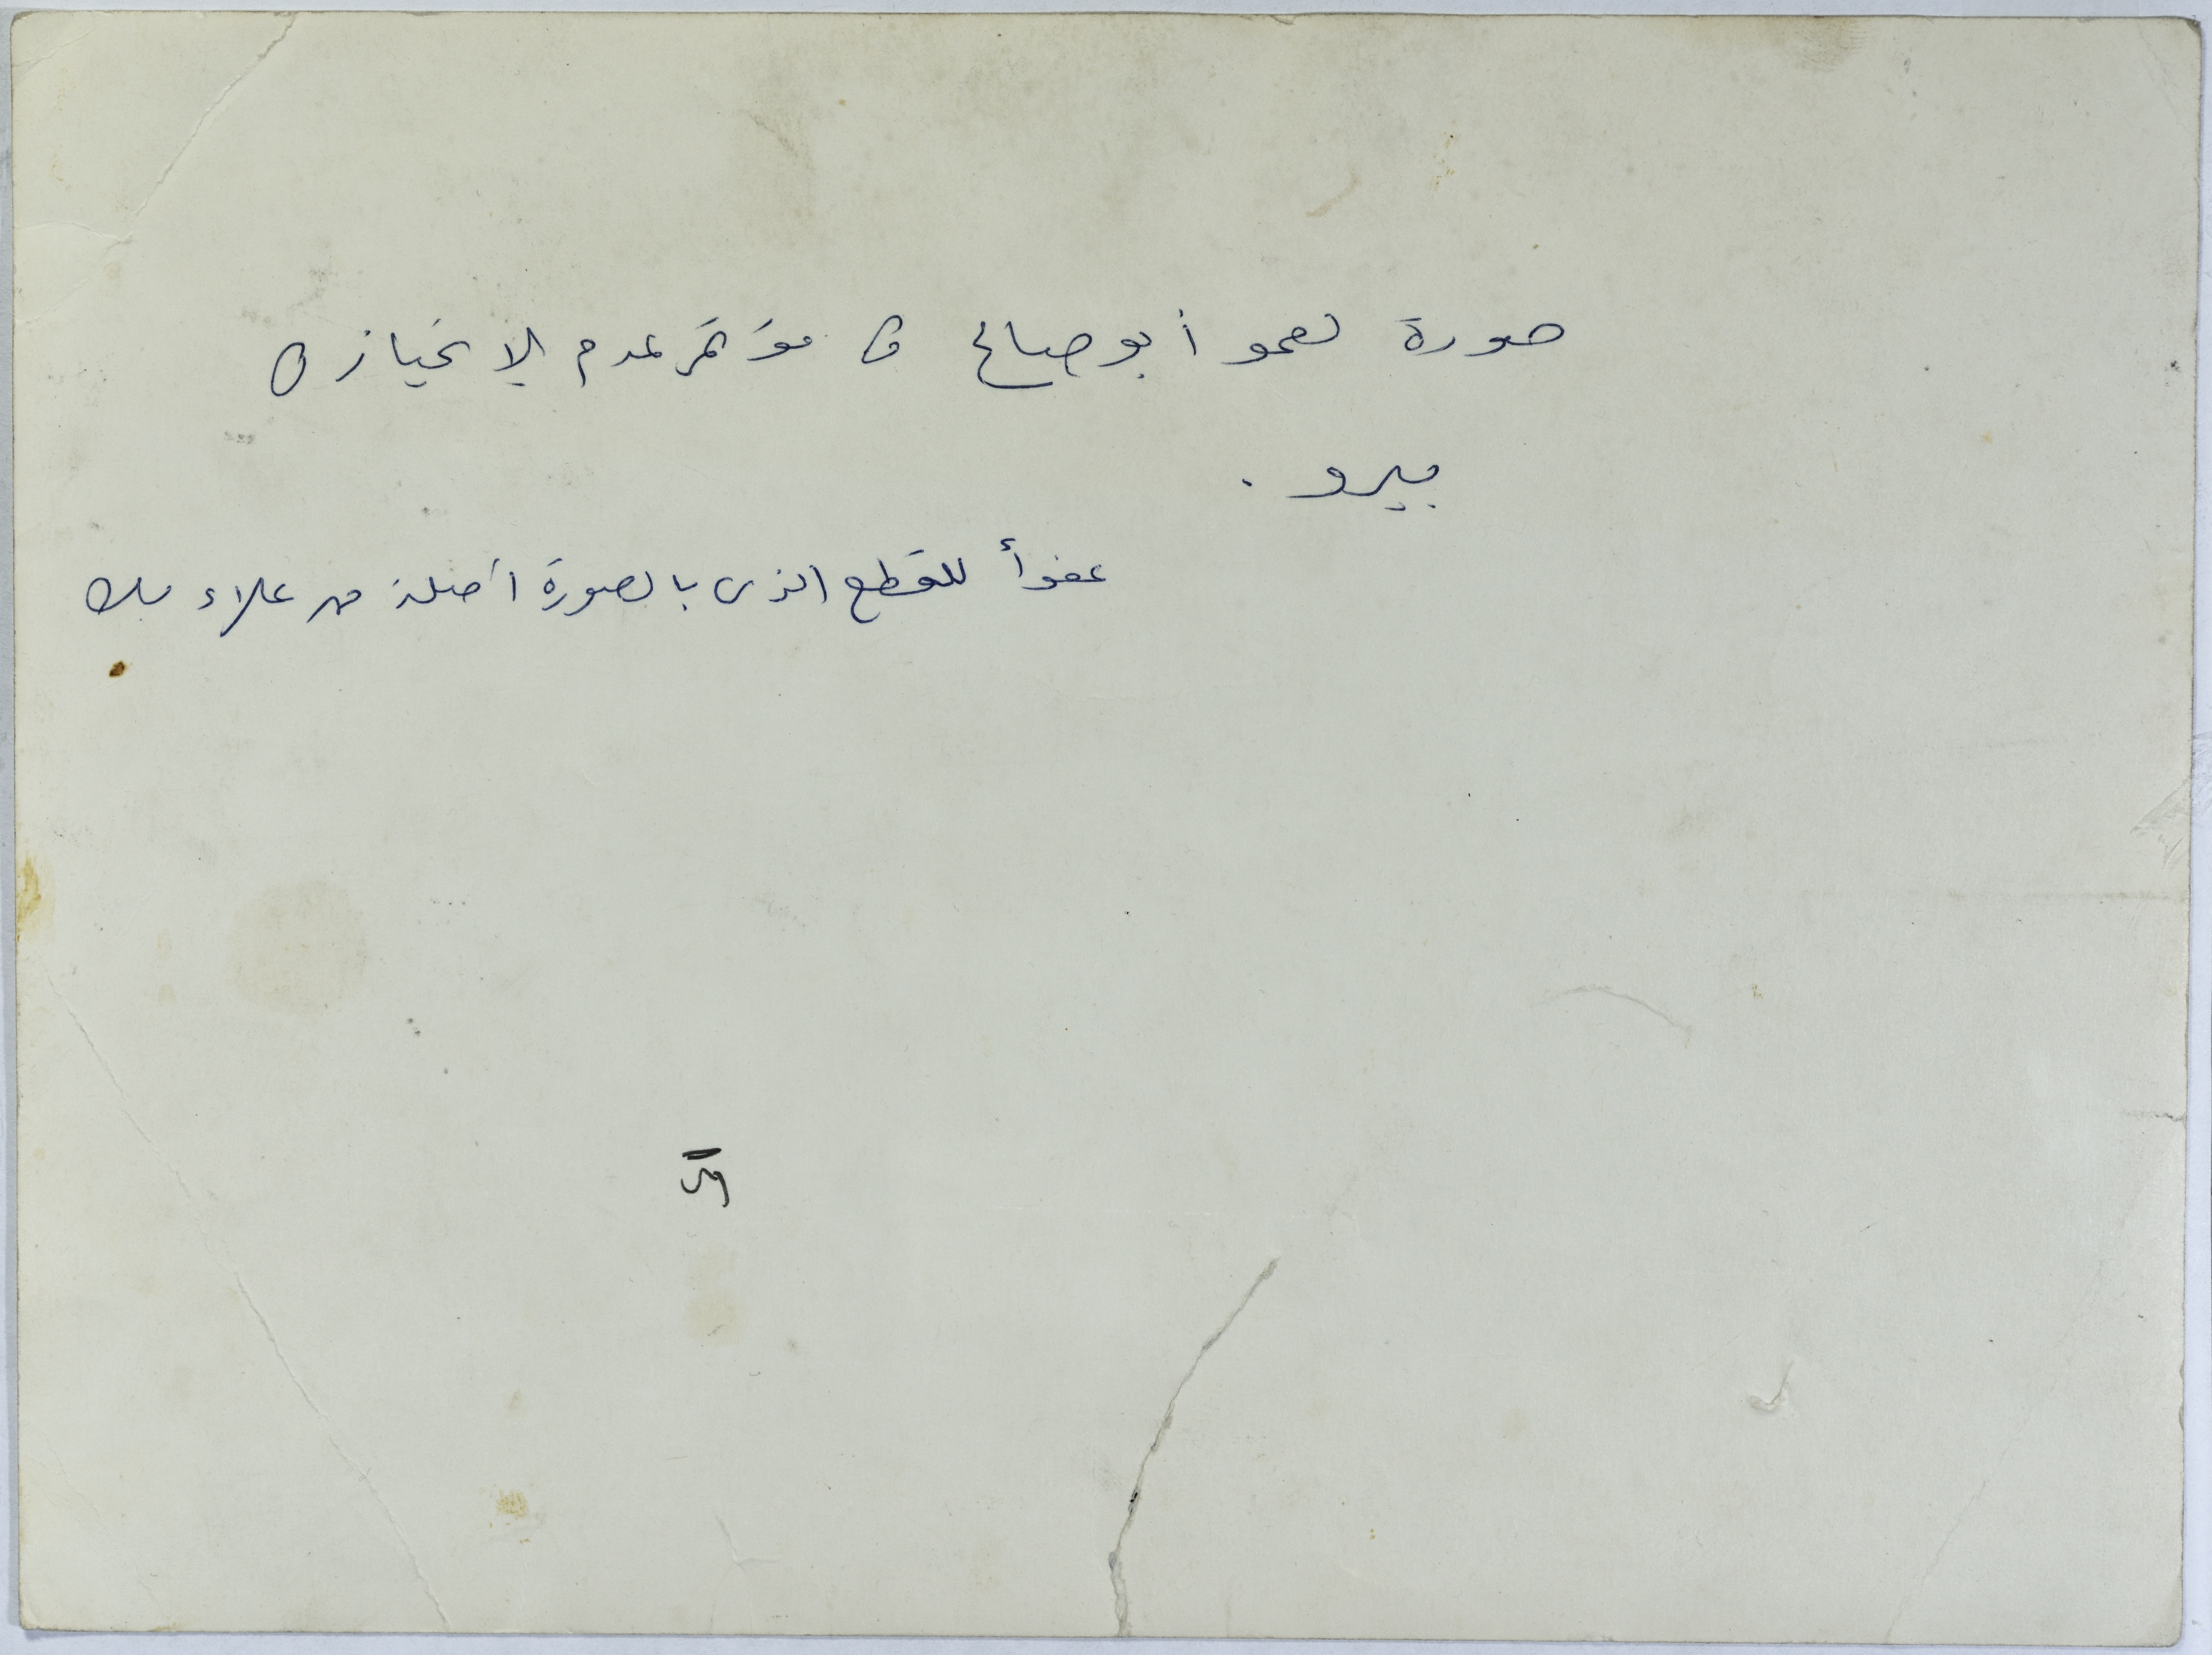 صورة لعمو أبو صالح في مؤتمر عدم الانحياز في
بيرو .
عفوأ للقطع الذى بالصورة أصلة من علاء